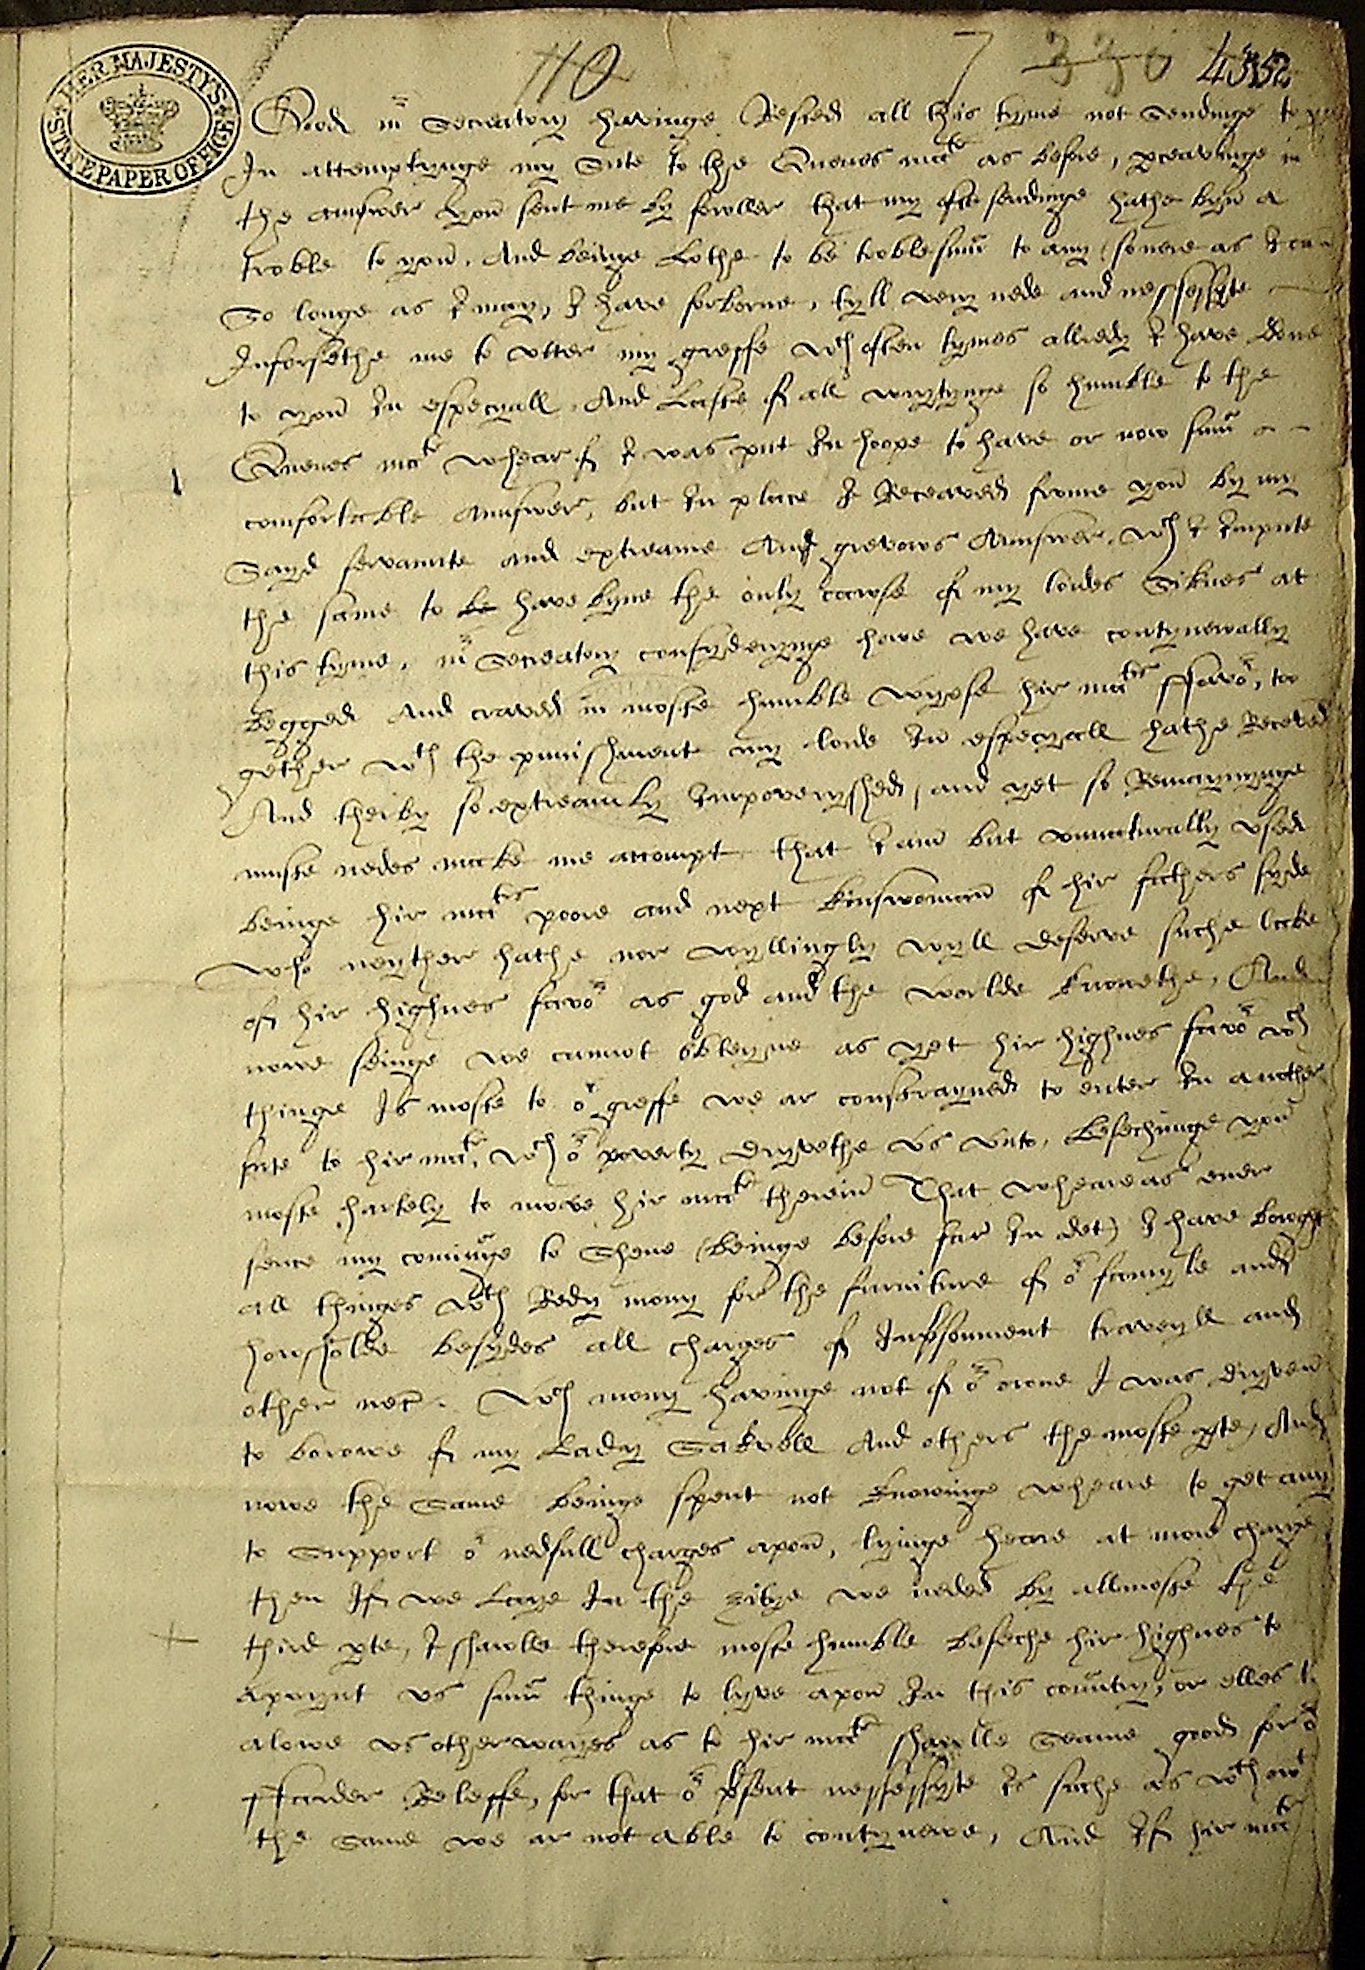 HER MAJESTY'S
STATE PAPER OFFICE
110 7 330
Good mr Secreatory havinge Rested all this tyme not Sendinge to you
In attemptynge my Sute to the Quenes matie as before, perceavinge in
the answer you sent me by fowller that my ofte sendinge hathe byn a
troble to you. And beinge Lothe to be troblesum to any (so nere as I can
So longe as I may, I have forborne, tyll very nede and nessessyte
Inforsethe me to utter my greffe wch often tymes allredy I have done
to you In especyall. And Laste of all wrytynge so humble to the
Quenes matie whear of I was put In hoope to have or now sum
comfortable Annswer, but In place I Receaved frome you by my
Sayd servannte and extreame And grevows Annswer, wch I Impute
the same to be have byne the only cawse of my lordes Siknes at
this tyme. mr Secreatory consyderynge howe we have contynewally
begged And craved in moste humble wyesse hir maties ffavor, to
gether wth the punishment my lorde In especyall hathe Receved
And therby so extreamly Impoveryshed, and yet so Remaynynge
muste nedes make me accompt that I am but unnaturally used
beinge hir maties poore and next kinswoman of hir fathers syde
who neyther hathe nor wyllingly wyll deserve suche lacke
of hir highnes favor as god and the worlde knowethe, And
nowe seinge we cannot obteyne as yet hir highnes favor wch
thinge Is moste to or greffe we ar constrayned to enter In another
sute to hir matie, wch or poverty dryvethe us unto, Besechinge you
moste hartely to move hir matie therein That wheareas ever
sence my cominge to Shene (beinge before far In det) I have bowght
all thinges wth Redy mony for the furniture of or famyle and
howsholde besydes all charges of Inprisonment traveyll and
other nec. Wch mony havinge not of or owne I was dryven
to borowe of my Lady Sakvell And others the moste parte, And
nowe the Same beinge spent not knowinge wheare to get any
to Support or nedfull charges apon, lyinge heare at more charge
then If we Laye In the we neded by allmoste the
third parte, I shawlle therefore moste humble beseche hir highnes to
apoynt us sum thinge to lyve apon In this country, or elles to
alowe us otherwayes as to hir matie shawlle Seame good for or
Releffe, for that or present nessessyte Is suche as wthowt
the Same we ar not able to contynewe, And If hir matie